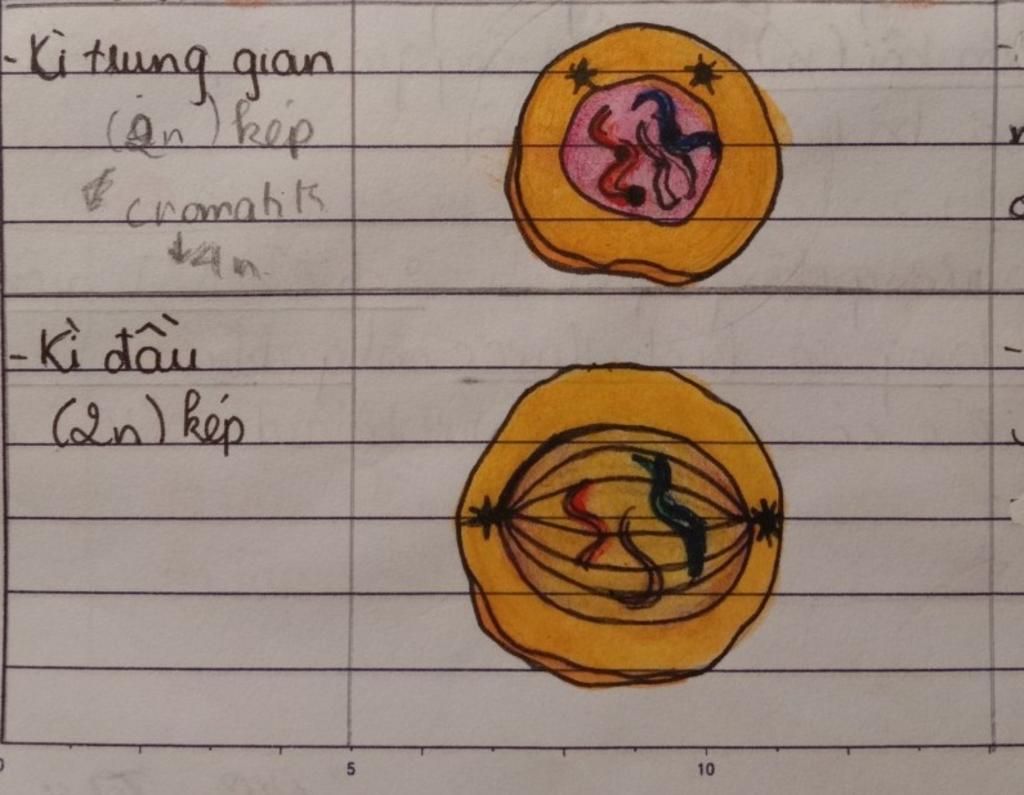 - Kì trung gian
(2n) kép
cromatit
4n
- Kì đầu
(2n) kép
0 5 10